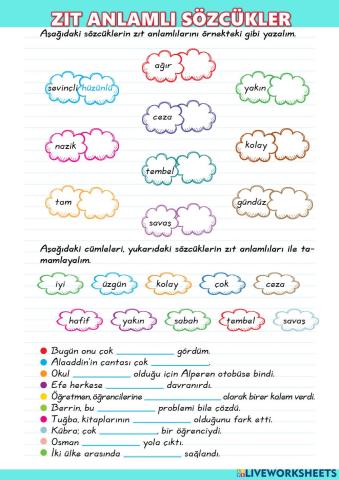 ZIT ANLAMLI SÖZCÜKLER
Aşağıdaki sözcüklerin zıt anlamlılarını örnekteki gibi yazalım.
ağır
sevinçli hüzünlü
yakın
ceza
nazik
kolay
tembel
tam
gündüz
savaş
Aşağıdaki cümleleri, yukarıdaki sözcüklerin zıt anlamlıları ile ta-
mamlayalım.
iyi üzgün kolay çok ceza
hafif yakın sabah tembel savaş
Bugün onu çok ___________ gördüm.
Alaaddin'in çantası çok ___________.
Okul ___________ olduğu için Alperen otobüse bindi.
Efe herkese ___________ davranırdı.
Öğretmen, öğrencilerine ___________ olarak birer kalem verdi.
Berrin, bu ___________ problemi bile çözdü.
Tuğba, kitaplarının ___________ olduğunu fark etti.
Kübra; çok ___________, bir öğrenciydi.
Osman ___________ yola çıktı.
İki ülke arasında ___________ sağlandı.
LIVEWORKSHEETS